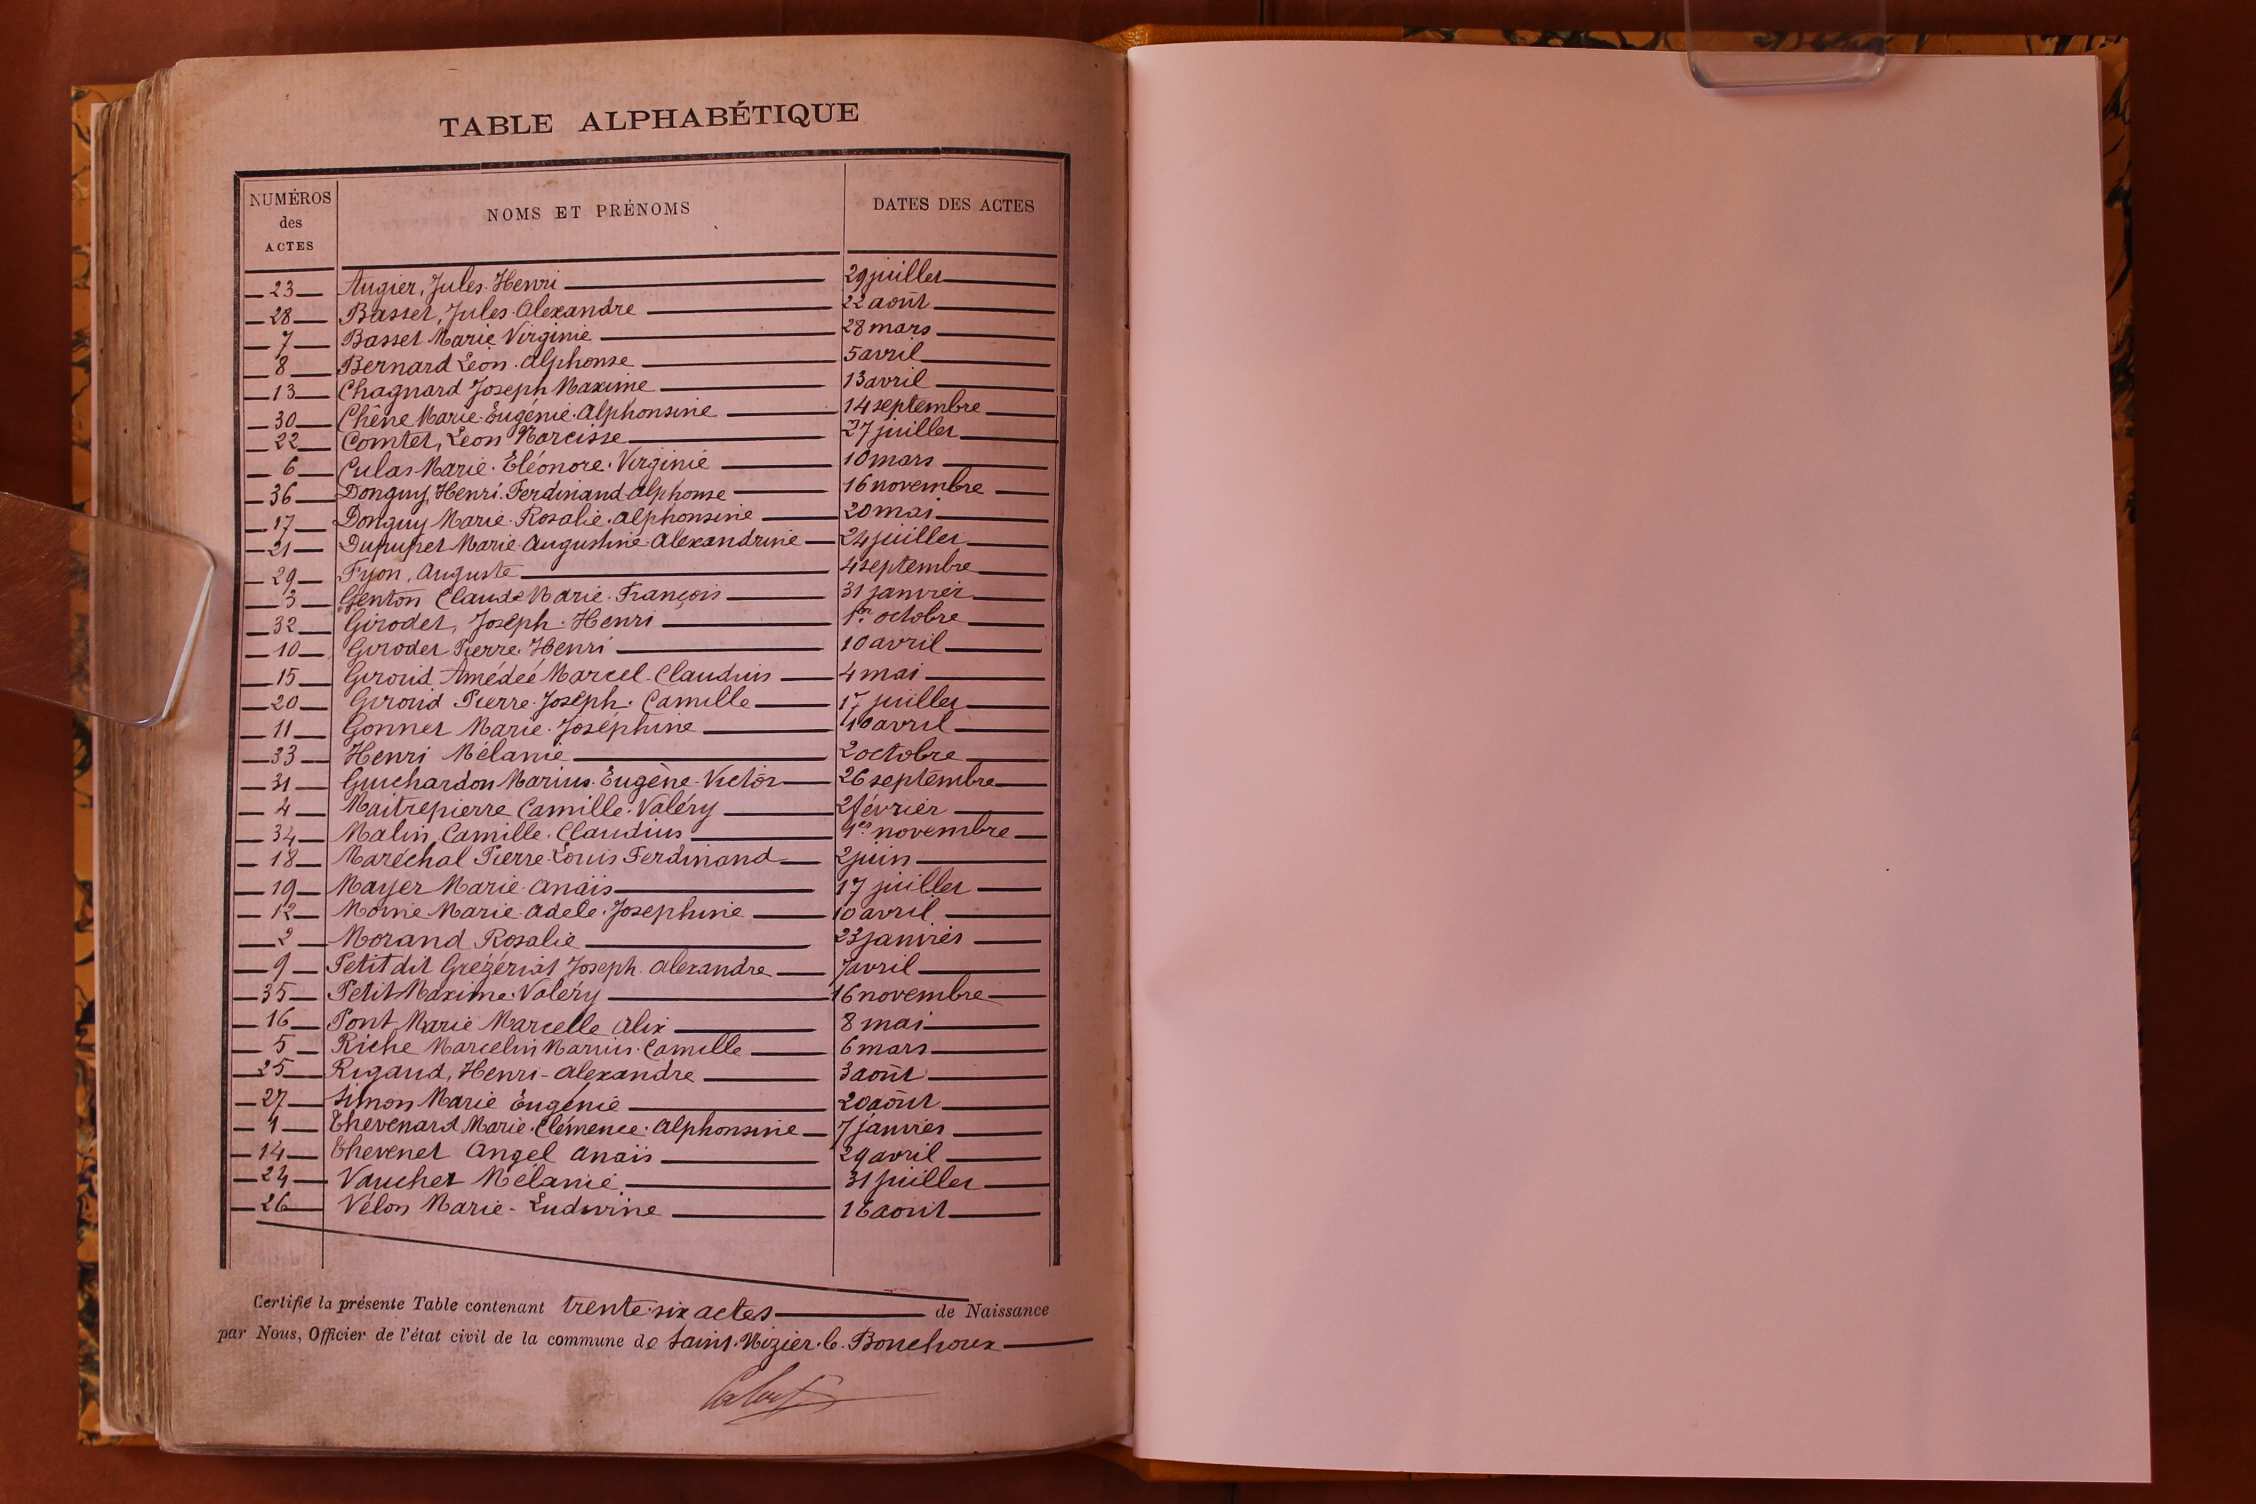 TABLE ALPHABÉTIQUE
NUMÉROS des ACTES NOMS ET PRÉNOMS DATES DES ACTES
23 Augier, Jules Henri 29 juillet
28 Basset, Jules Alexandre 22 août
7 Basset Marie Virginie 28 mars
8 Bernard Léon Alphonse 5 avril
13 Chagnard Joseph Maxime 13 avril
30 Chêne Marie Eugénie Alphonsine 14 septembre
22 Comtet, Léon Narcisse 27 juillet
6 Culas Marie Eléonore Virginie 10 mars
36 Donguy, Henri Ferdinand Alphonse 16 novembre
17 Donguy Marie Rosalie Alphonsine 20 mai
21 Dupuget Marie Augustine Alexandrine 24 juillet
29 Fyon, Auguste 4 septembre
3 Genton Claude Marie François 31 janvier
32 Girodet, Joseph Henri 1er octobre
10 Girodet Pierre Henri 10 avril
15 Giroud Amédée Marcel Claudius 4 mai
20 Giroud Pierre Joseph Camille 17 juillet
11 Gonnet Marie Joséphine 10 avril
33 Henri Mélanie 2 octobre
31 Guichardon Marius Eugène Victor 26 septembre
4 Maitrepierre Camille Valéry 2 février
34 Malin, Camille Claudius 1er novembre
18 Maréchal Pierre Louis Ferdinand 2 juin
19 Mayer Marie Anaïs 17 juillet
12 Moine Marie Adele Josephine 10 avril
2 Morand Rosalie 23 janvier
9 Petit dit Grézériat Joseph Alexandre 7 avril
35 Petit Maxime Valéry 16 novembre
16 Pont Marie Marcelle Alix 8 mai
5 Riche Marcelin Marius Camille 6 mars
25 Rigaud, Henri-Alexandre 3 août
27 Simon Marie Eugénie 20 août
1 Thevenard Marie Clémence Alphonsine 7 janvier
14 Thevenet Angel Anaïs 29 avril
24 Vaucher Mélanie 31 juillet
26 Vélon Marie-Ludwine 16 août
Certifié la présente Table contenant trente-six actes de Naissance
par Nous, Officier de l'état civil de la commune de Saint-Nizier-le-Bouchoux